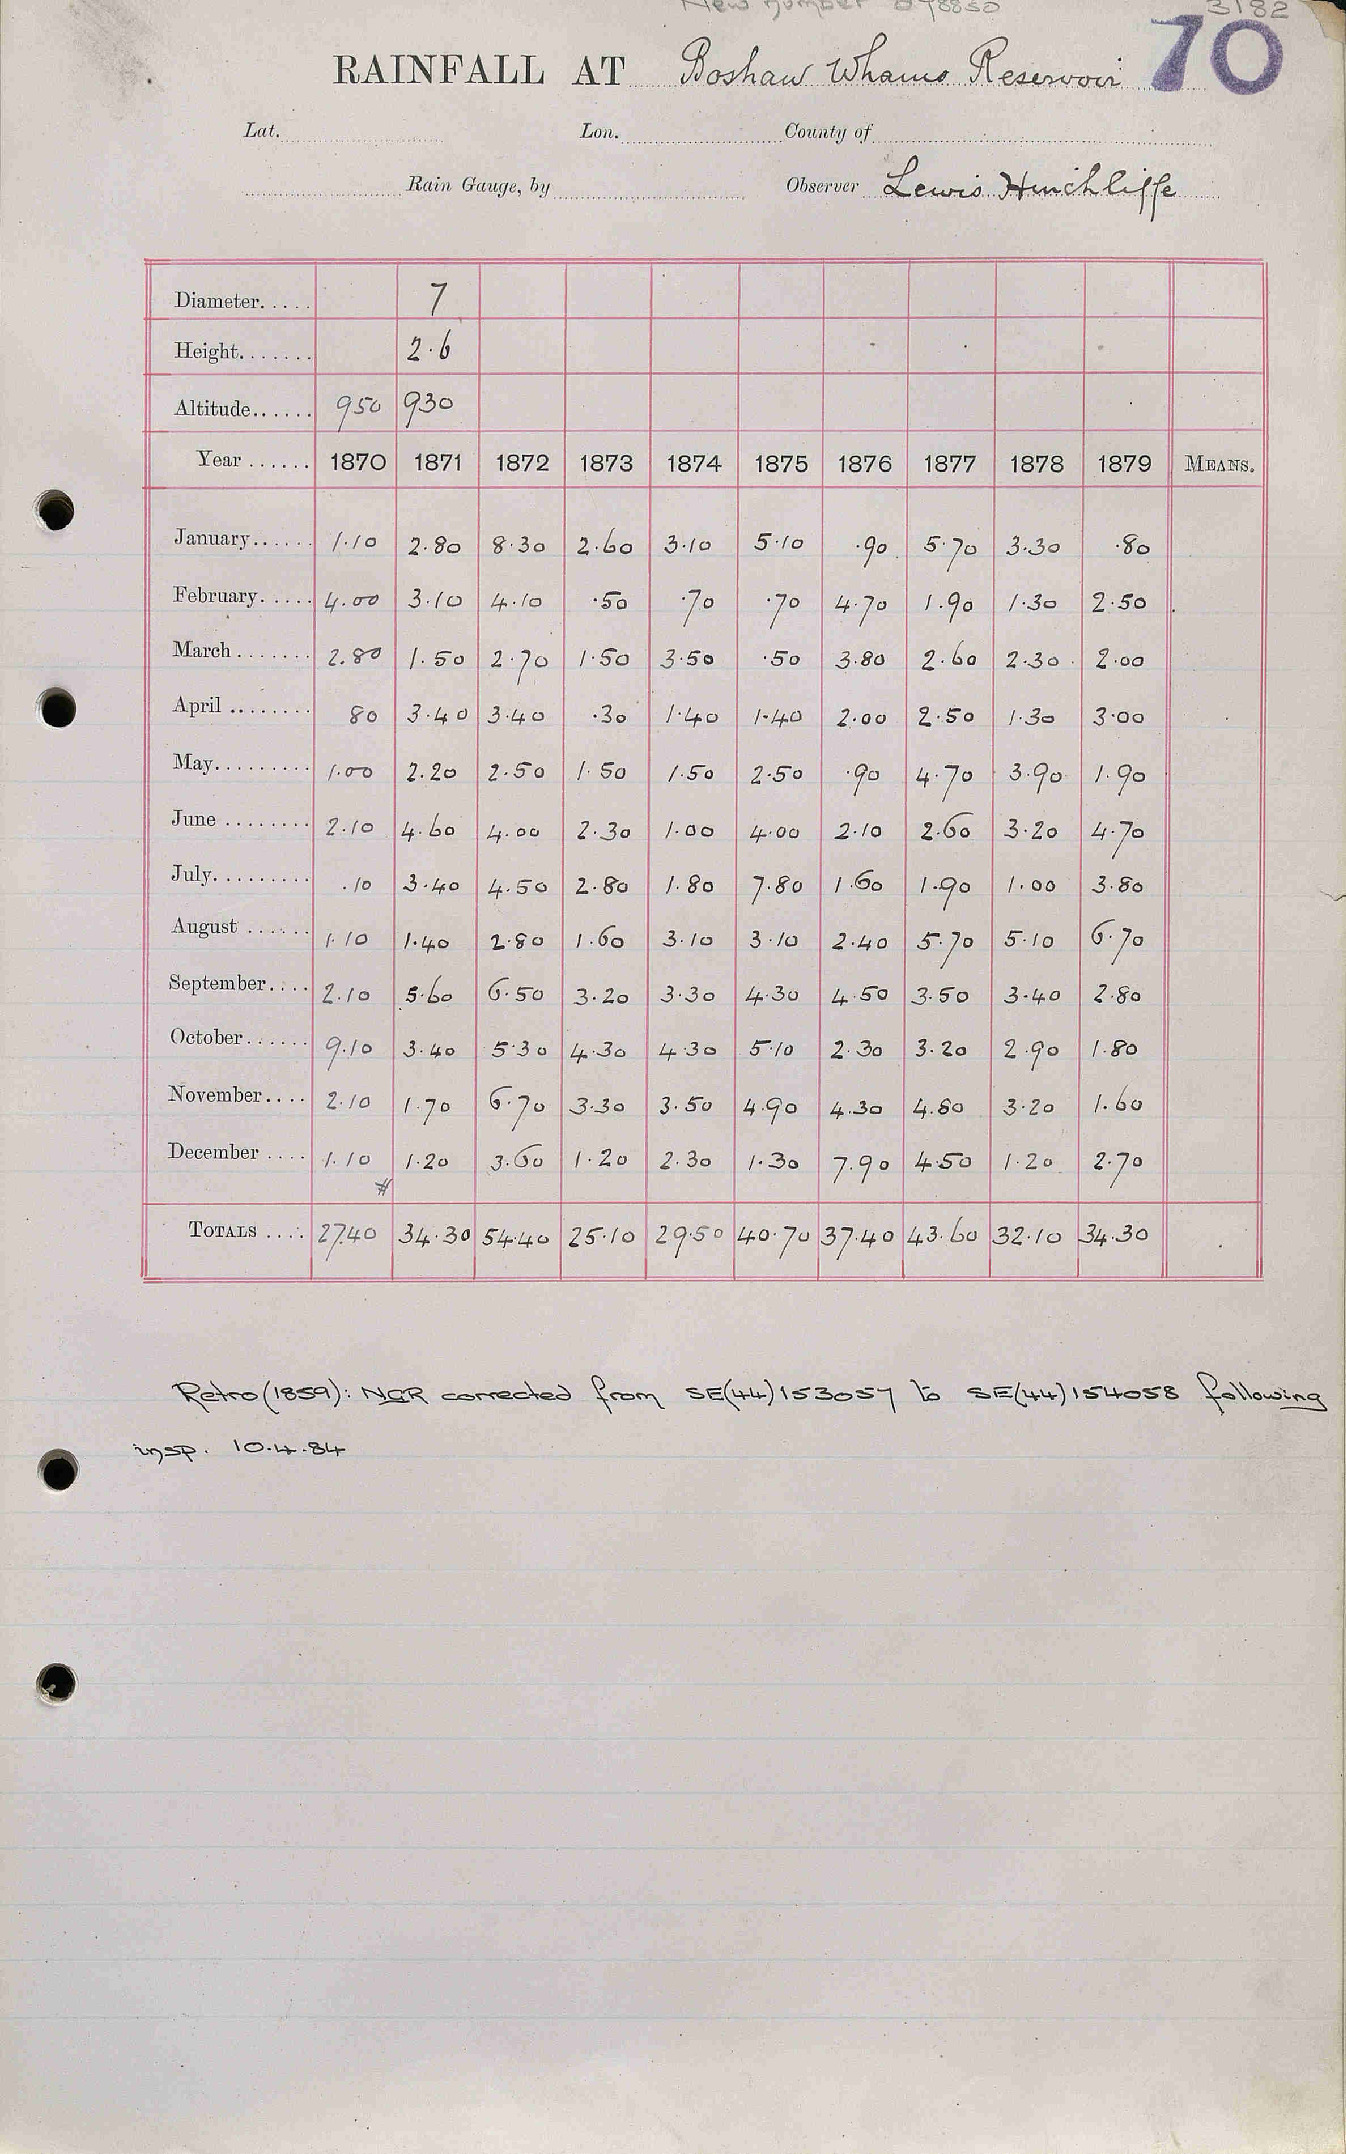 New number 3182
70
RAINFALL AT Boshaw Whams Reservoir
Lat. Lon. County of
Rain Gauge, by Observer Lewis Hinchliffe
Diameter..... 7
Height....... 2.6
Altitude...... 950 930
Year ...... 1870 1871 1872 1873 1874 1875 1876 1877 1878 1879 MEANS.
January...... 1.10 2.80 8.30 2.60 3.10 5.10 .90 5.70 3.30 .80
February..... 4.00 3.10 4.10 .50 .70 .70 4.70 1.90 1.30 2.50
March ....... 2.80 1.50 2.70 1.50 3.50 .50 3.80 2.60 2.30 2.00
April ........ 80 3.40 3.40 .30 1.40 1.40 2.00 2.50 1.30 3.00
May......... 1.00 2.20 2.50 1.50 1.50 2.50 .90 4.70 3.90 1.90
June ........ 2.10 4.60 4.00 2.30 1.00 4.00 2.10 2.60 3.20 4.70
July......... .10 3.40 4.50 2.80 1.80 7.80 1.60 1.90 1.00 3.80
August ...... 1.10 1.40 2.80 1.60 3.10 3.10 2.40 5.70 5.10 6.70
September.... 2.10 5.60 6.50 3.20 3.30 4.30 4.50 3.50 3.40 2.80
October...... 9.10 3.40 5.30 4.30 4.30 5.10 2.30 3.20 2.90 1.80
November.... 2.10 1.70 6.70 3.30 3.50 4.90 4.30 4.80 3.20 1.60
December .... 1.10 1.20 3.60 1.20 2.30 1.30 7.90 4.50 1.20 2.70
#
TOTALS .... 27.40 34.30 54.40 25.10 29.50 40.70 37.40 43.60 32.10 34.30
Retro (1859): NGR corrected from SE(44)153057 to SE(44)154058 following
insp. 10.4.84